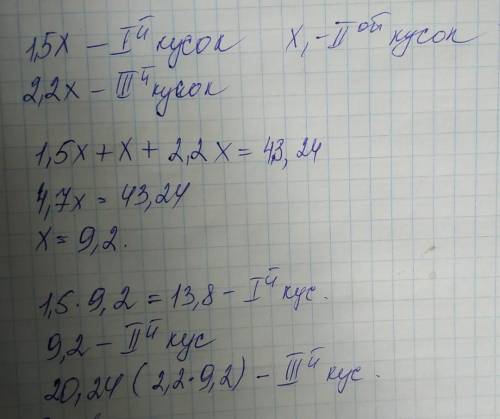 1,5x – Iй кусок   x, – IIой кусок
2,2x – IIIй кусок
1,5x + x + 2,2x = 43,24
4,7x = 43,24
x = 9,2.
1,5 · 9,2 = 13,8 – Iй кус.
9,2 – IIй кус
20,24 (2,2·9,2) – IIIй кус.